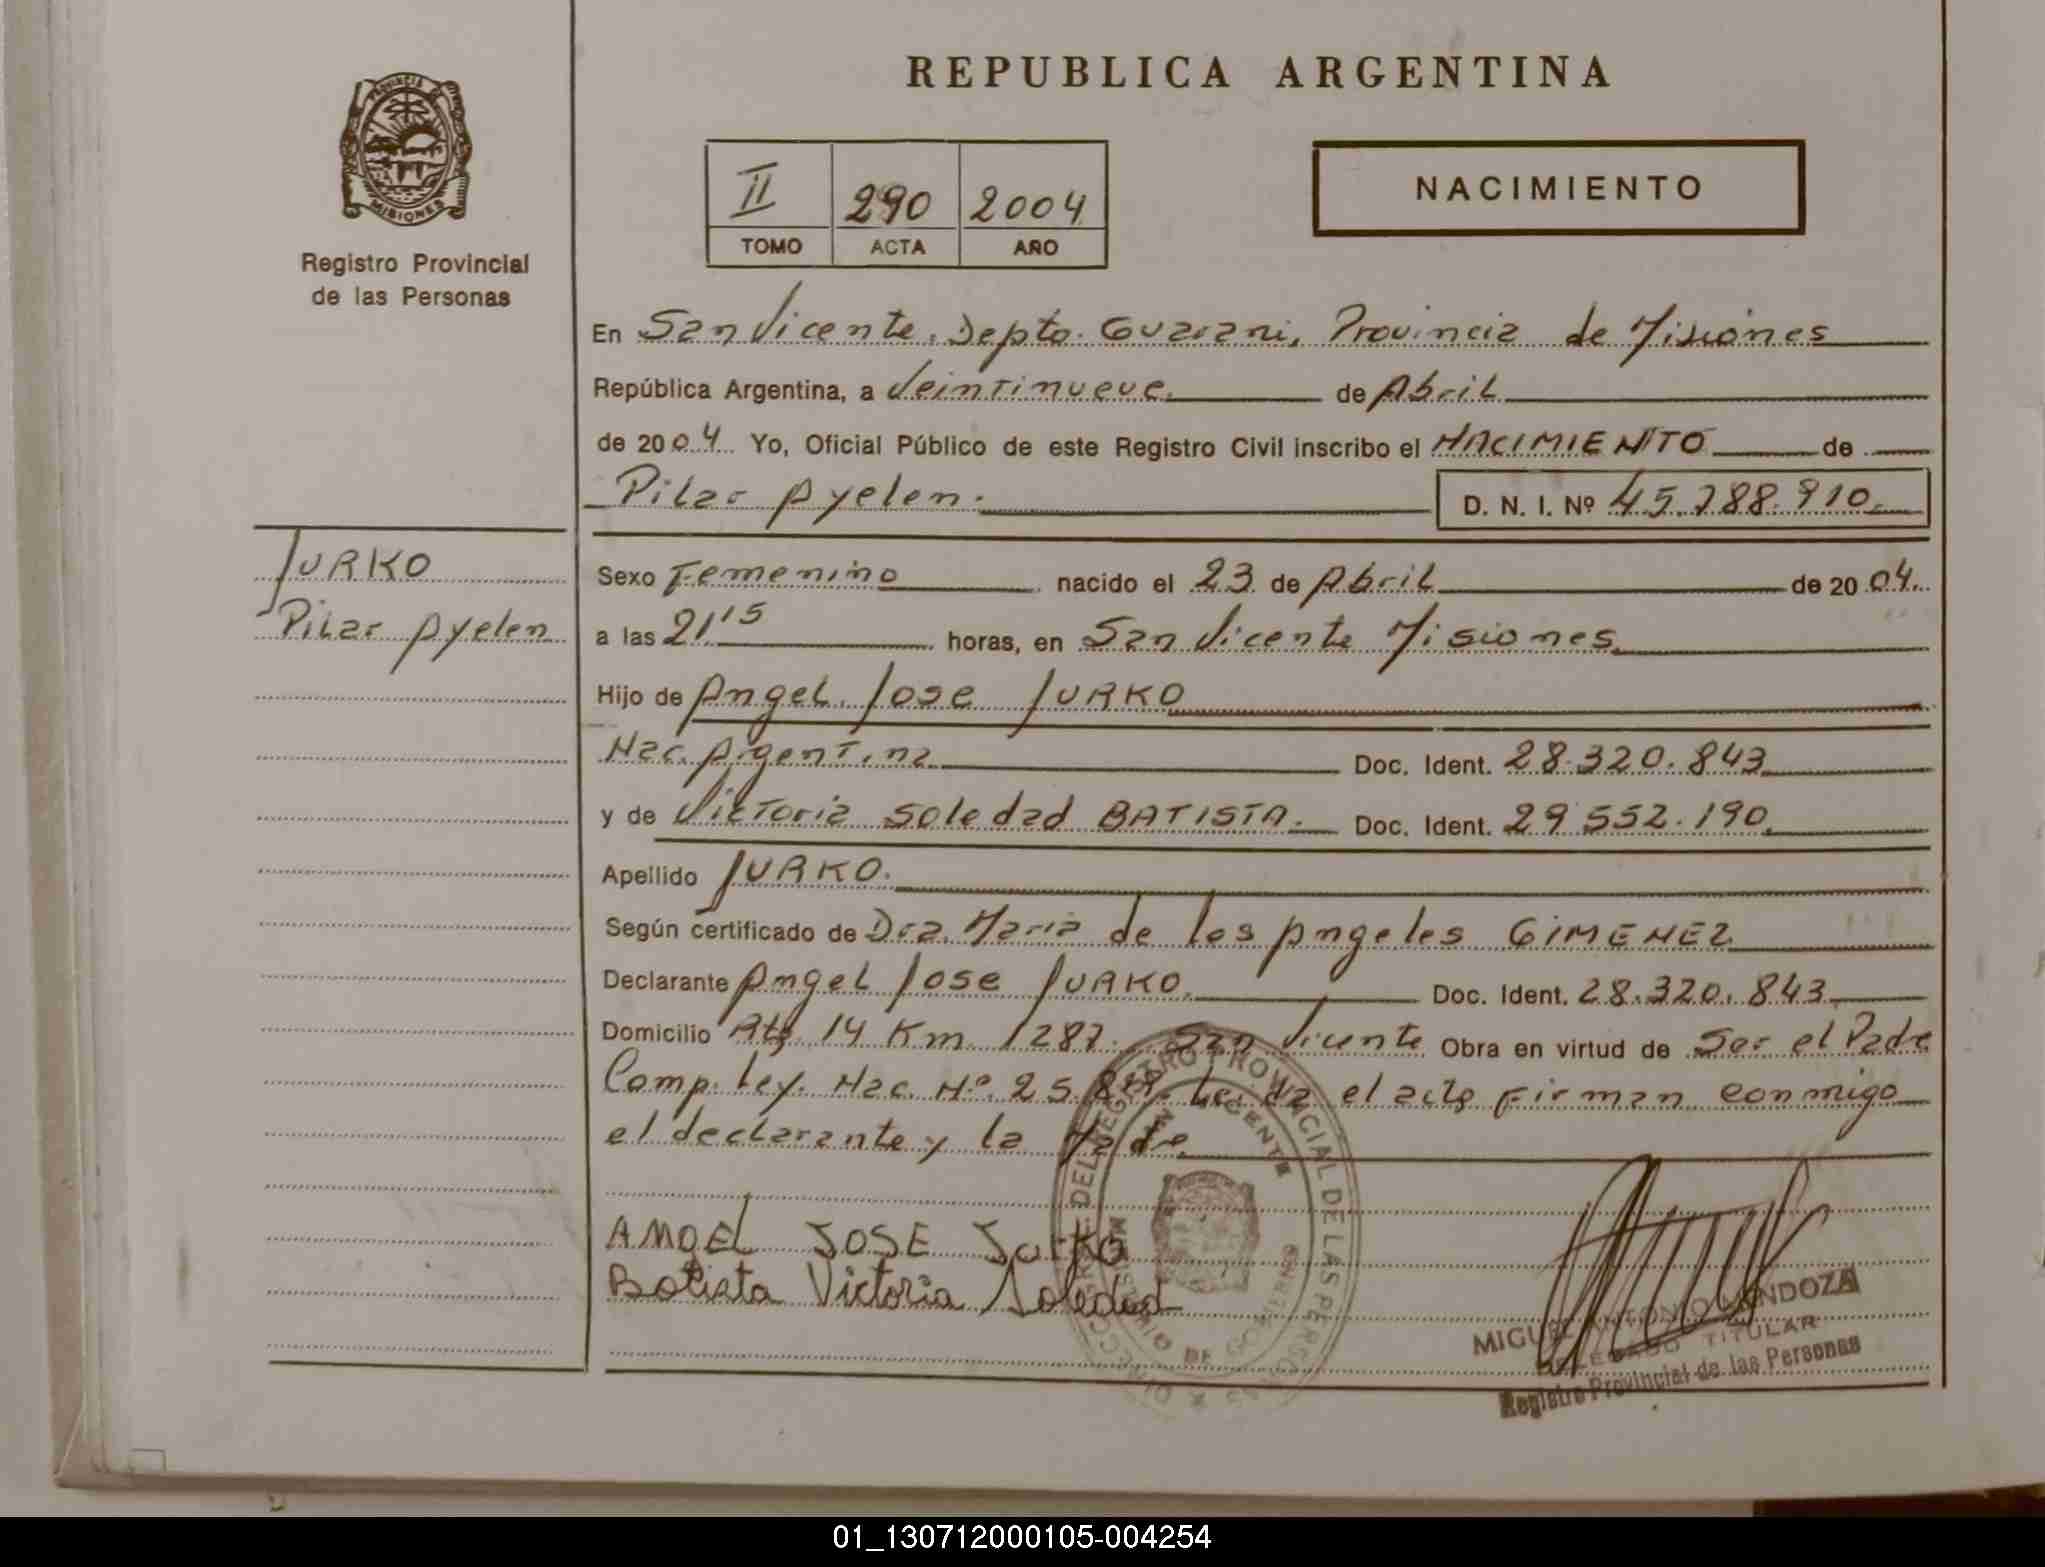 REPUBLICA ARGENTINA
PROVINCIA DE
MISIONES
Registro Provincial
de las Personas
II 290 2004
TOMO ACTA AÑO
NACIMIENTO
En San Vicente. Depto. Guarani, Provincia de Misiones
República Argentina, a Veintinueve de Abril
de 2004 Yo, Oficial Público de este Registro Civil inscribo el NACIMIENTO de
Pilar Ayelen. D. N. I. Nº 45.288.910.
JURKO
Pilar Ayelen
Sexo Femenino nacido el 23 de Abril de 2004.
a las 21,15 horas, en San Vicente Misiones
Hijo de Angel Jose JURKO
Nac. Argentina Doc. Ident. 28.320.843
y de Victoria Soledad BATISTA. Doc. Ident. 29.552.190
Apellido JURKO.
Según certificado de Dra. Maria de los Angeles GIMENEZ
Declarante Angel Jose JURKO Doc. Ident. 28.320.843
Domicilio Rta 14 Km 1287. San Vicente Obra en virtud de Ser el Padre
Comp. Ley. Nac. Nº 25.819. Leida el acta firman conmigo
el declarante y la Madre
ANGEL JOSE Jurko
Batista Victoria Soledad
DIRECCION GRAL. DEL REGISTRO PROVINCIAL DE LAS PERSONAS
SAN VICENTE
MINISTERIO DE GOBIERNO
MIGUEL ANTONIO MENDOZA
DELEGADO TITULAR
Registro Provincial de las Personas
01_130712000105-004254